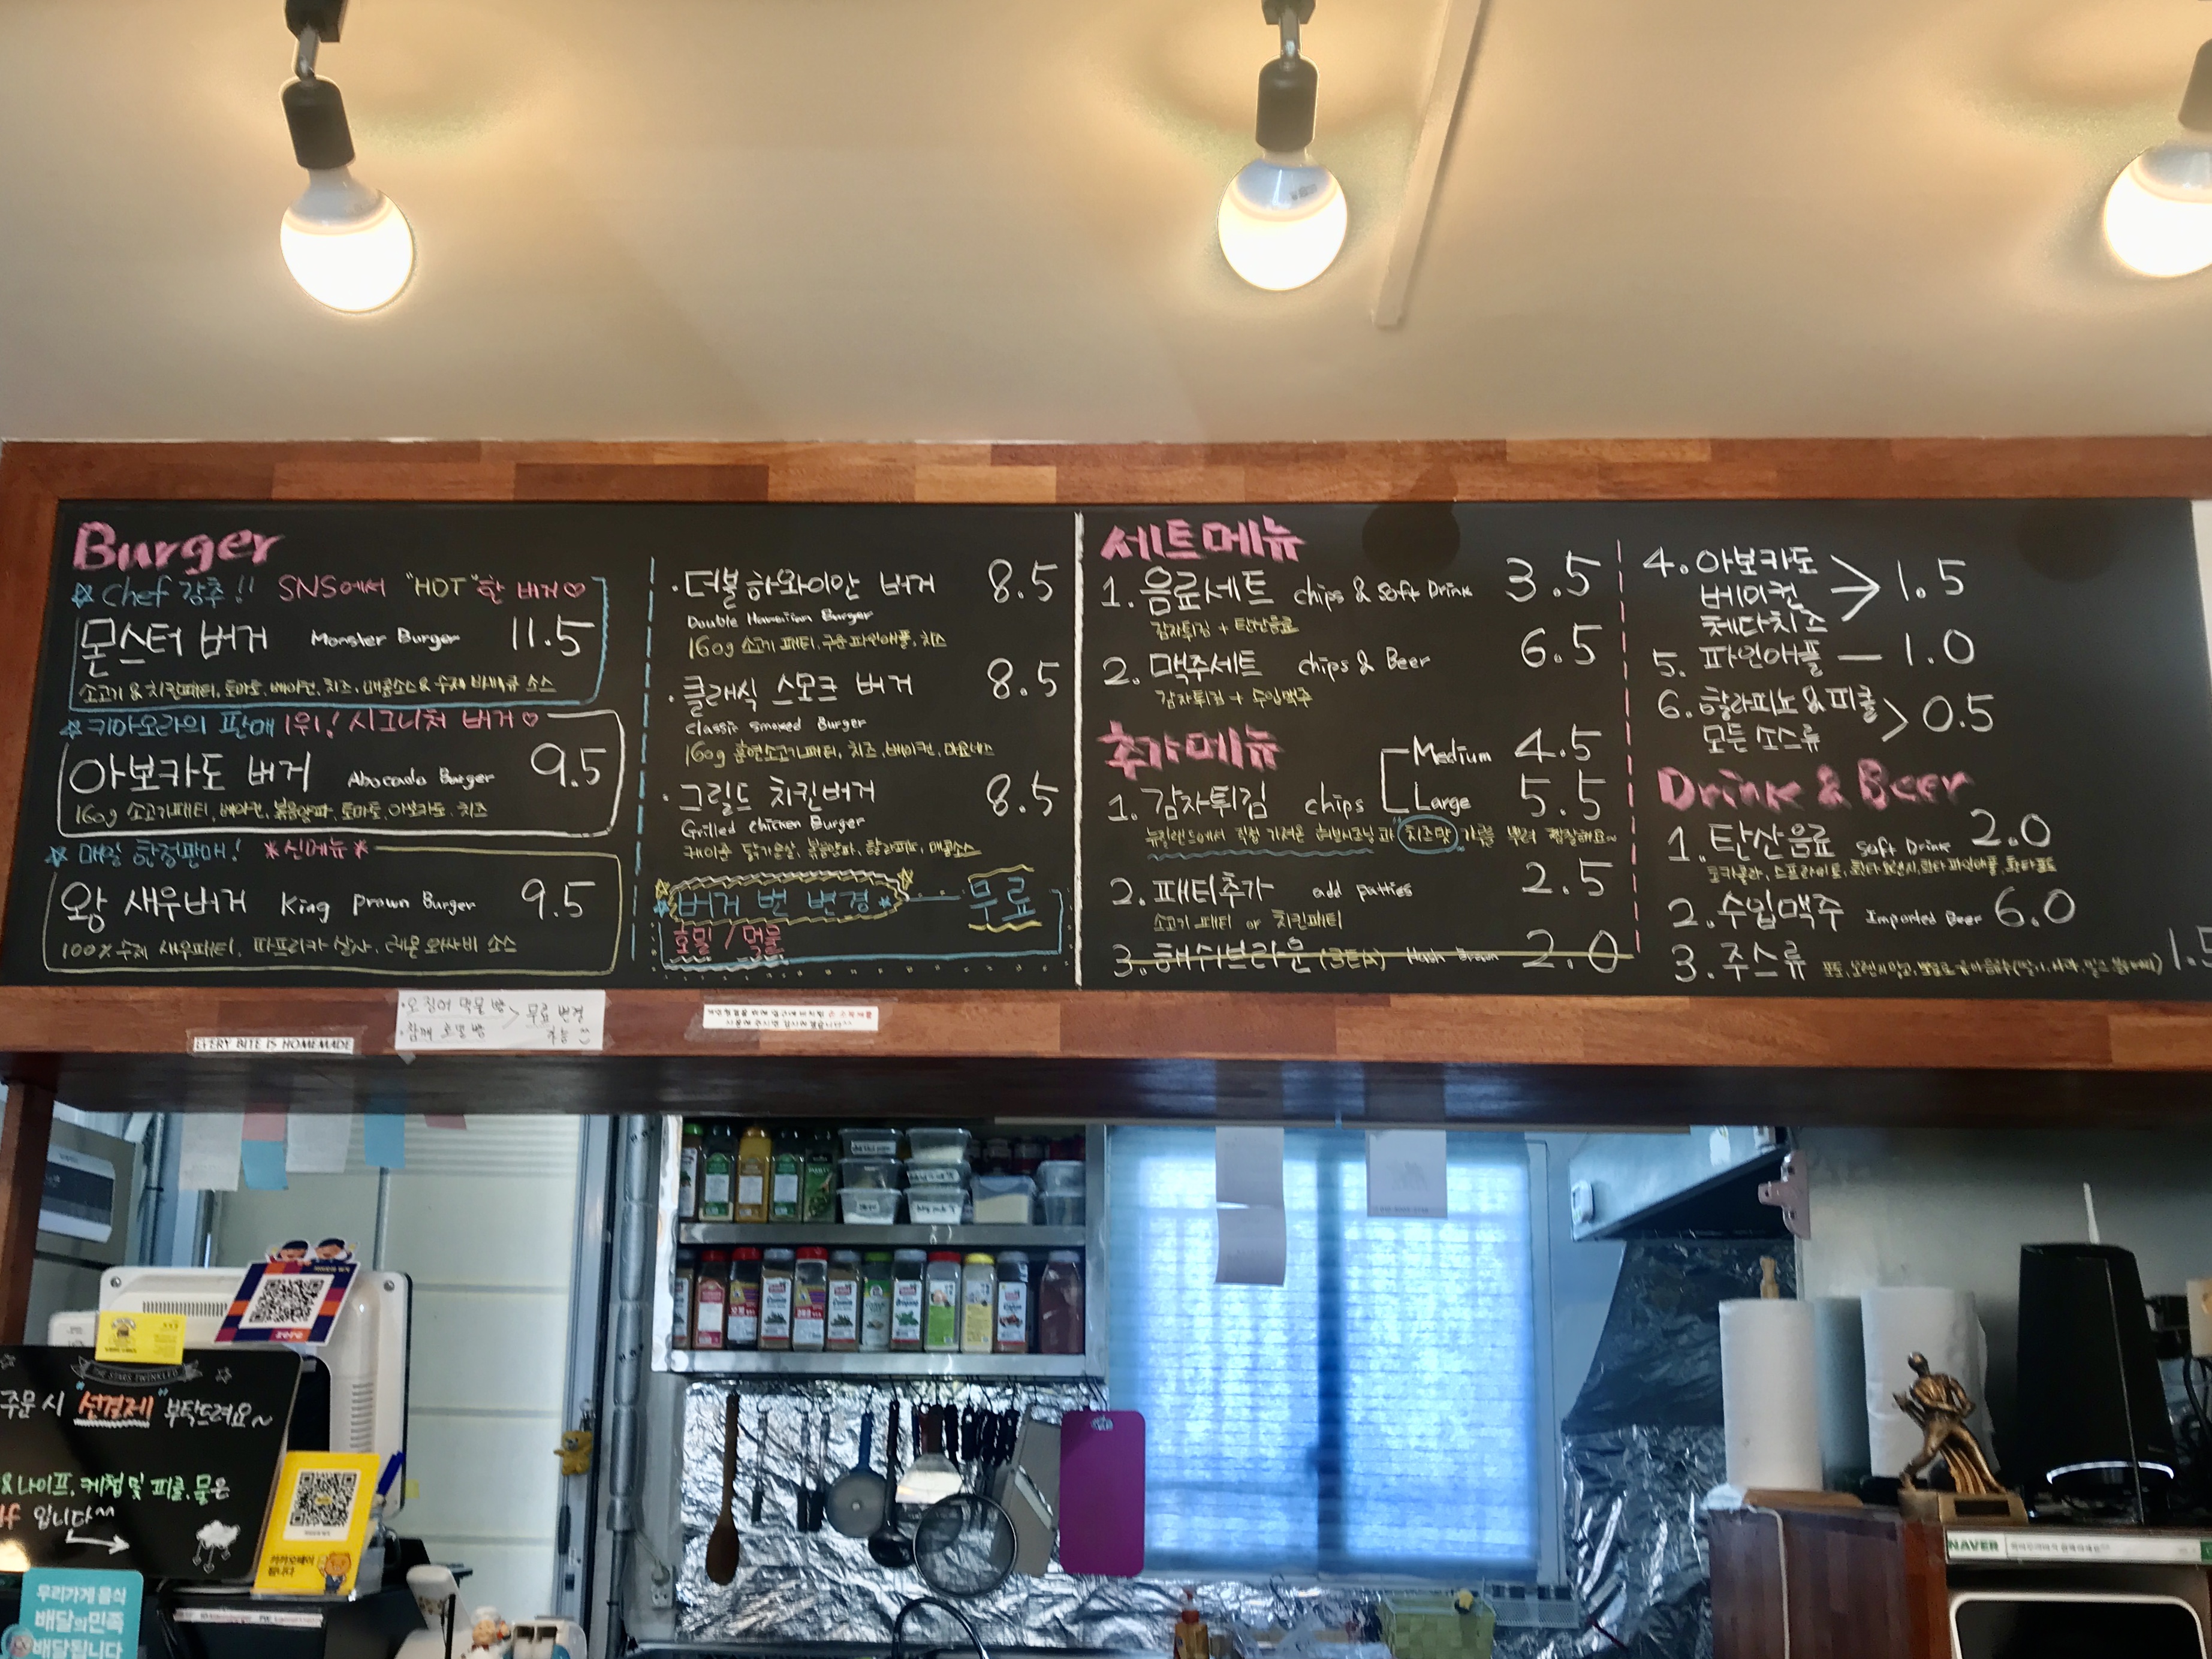 Burger
Chef 강추!! SNS에서 "HOT"한 버거♡
몬스터 버거 Monster Burger 11.5
소고기 & 치킨패티, 토마토, 베이컨, 치즈, 매콤소스 & 수제 바베큐 소스
키아오라의 판매 1위! 시그니처 버거♡
아보카도 버거 Abocado Burger 9.5
160g 소고기패티, 베이컨, 볶음양파, 토마토, 아보카도, 치즈
매일 한정판매! *신메뉴*
왕 새우버거 King prawn Burger 9.5
100% 수제 새우패티, 파프리카 살사, 레몬 와사비 소스
·더블 하와이안 버거 8.5
Double Hawaiian Burger
160g 소고기 패티, 구운 파인애플, 치즈
·클래식 스모크 버거 8.5
classic smoked Burger
160g 훈연소고기패티, 치즈, 베이컨, 마요네스
·그릴드 치킨버거 8.5
Grilled chicken Burger
케이준 닭가슴살, 볶음양파, 할라피뇨, 매콤소스
버거 번 변경 무료
호밀 / 먹물
세트메뉴
1. 음료세트 chips & Soft Drink 3.5
감자튀김 + 탄산음료
2. 맥주세트 chips & Beer 6.5
감자튀김 + 수입맥주
추가메뉴
1. 감자튀김 chips
Medium 4.5
Large 5.5
뉴질랜드에서 직접 가져온 허브시즈닝과 치즈맛 가루를 뿌려 짭짤해요~
2. 패티추가 add patties 2.5
소고기 패티 or 치킨패티
3. 해쉬브라운 (3EA) Hash Brown 2.0
4. 아보카도
베이컨 > 1.5
체다치즈
5. 파인애플 — 1.0
6. 할라피뇨 & 피클 > 0.5
모든 소스류
Drink & Beer
1. 탄산음료 Soft Drink 2.0
코카콜라, 스프라이트, 환타오렌지, 환타파인애플, 환타포도
2. 수입맥주 Imported Beer 6.0
3. 주스류 1.5
EVERY BITE IS HOMEMADE
·오징어 먹물 빵 > 무료 변경
·참깨 호밀 빵 가능
THE STARS TWINKLED
주문 시 "선결제" 부탁드려요~
& 나이프, 케첩 및 피클, 물은
lf 입니다^^
카카오페이
됩니다
우리가게 음식
배달의민족
배달됩니다
zero
NAVER